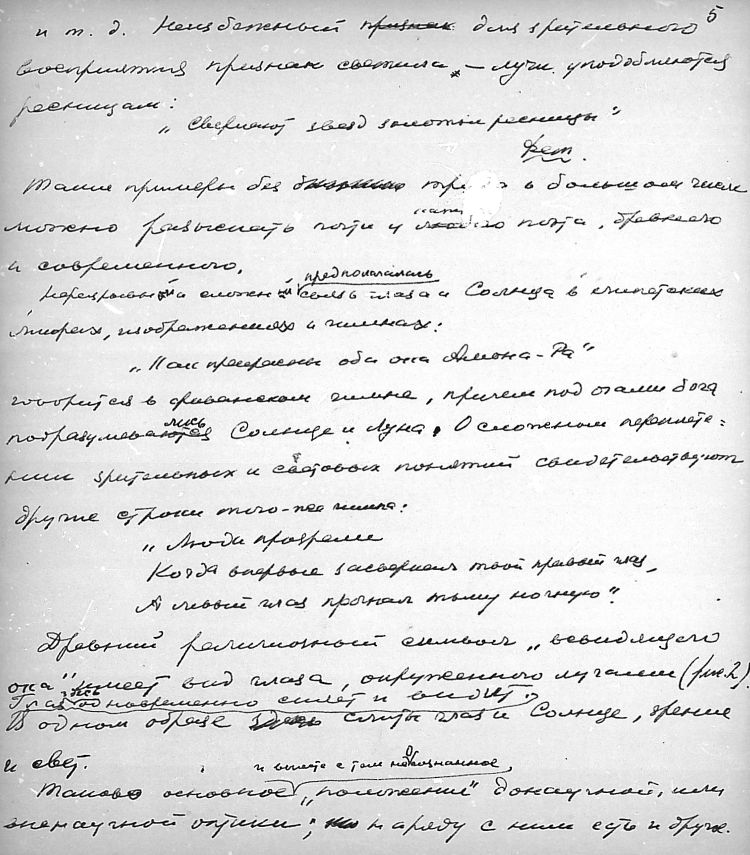 5
и т. д. Неизбежный признак для зрительного
восприятия признак светила, – лучи уподобляются
ресницам:
„Сверкают звезд золотые ресницы“
Фет.
Такие примеры без в большом числе
можно разыскать почти у поэта, древнего
и современного.
предполагалась
Неразрывная и сложная связь глаза и Солнца в египетских
мифах, изображениях и гимнах:
„Как прекрасны оба ока Амона-Ра“
говорится в фиванском гимне, причем под очами бога
лись
подразумеваются Солнце и Луна. О сложном перепле-
нии зрительных и световых понятий свидетельствуют
другие строки того-же гимна:
„Люди прозрели
Когда впервые засверкал твой правый глаз,
А левый глаз прогнал тьму ночную“.
Древний религиозный символ „всевидящего
ока“ имеет вид глаза, окруженного лучами (рис. 2).
Глаз здесь одновременно сияет и видит.
В одном образе здесь слиты глаз и Солнце, зрение
и свет.
и вместе с тем неосознанное,
Таково основное „положение“ донаучной, или
вненаучной оптики; но наряду с ним есть и друг.